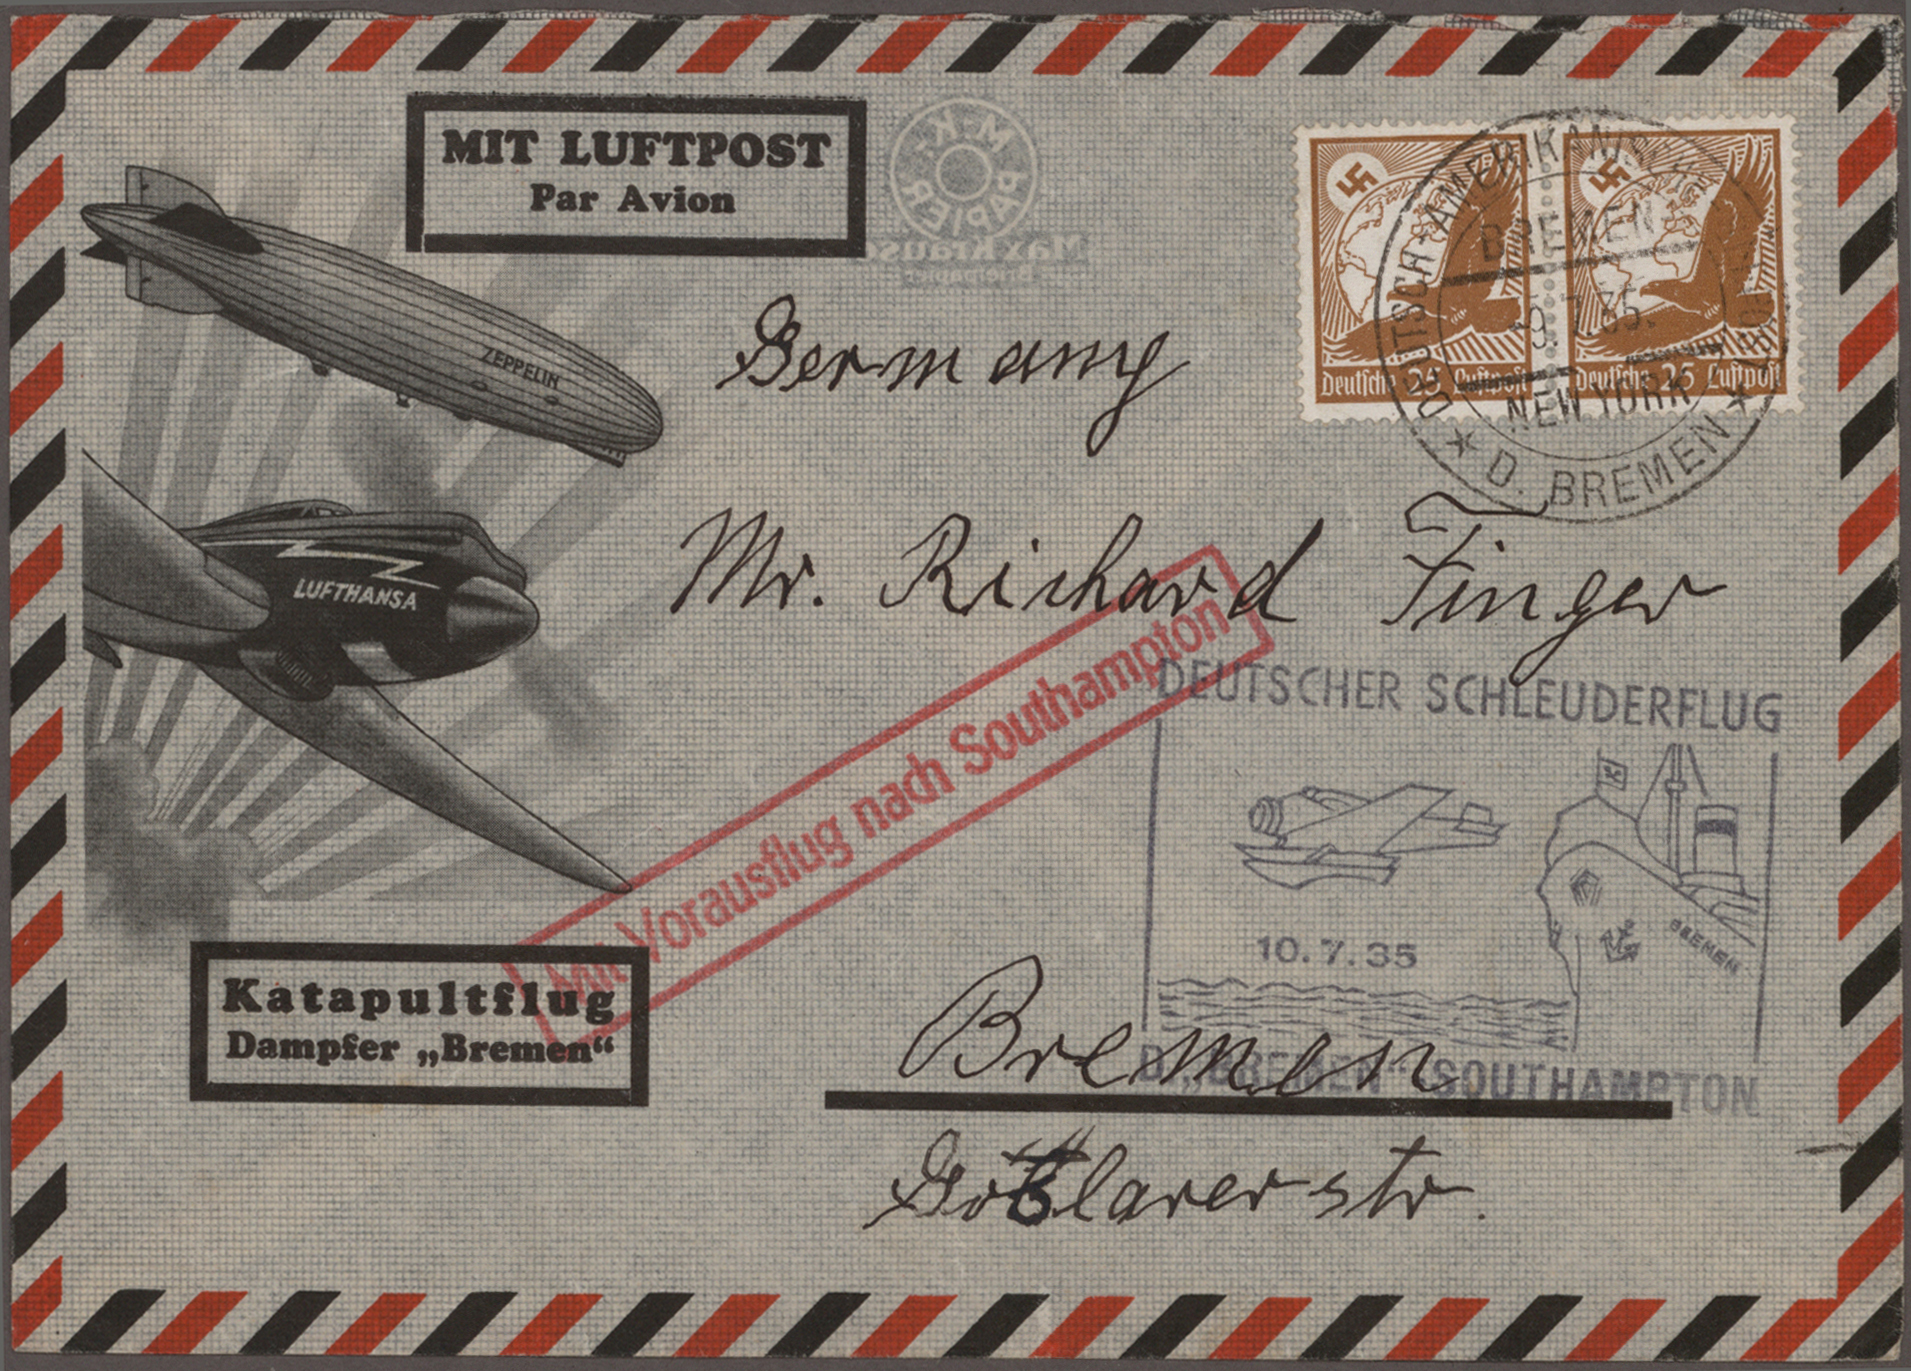 MIT LUFTPOST
Par Avion
M-K-PAPIER
Max Krause
Briefpapier
ZEPPELIN
LUFTHANSA
Deutsche 25 Luftpost
Deutsche 25 Luftpost
DEUTSCH-AMERIKANISCHE
BREMEN
-9.7.35.
NEW YORK
★ D. BREMEN ★
Germany
Mr. Richard Finger
Mit Vorausflug nach Southampton
DEUTSCHER SCHLEUDERFLUG
BREMEN
10.7.35
D. „BREMEN“-SOUTHAMPTON
Bremen
Goßlarerstr.
Katapultflug
Dampfer „Bremen“